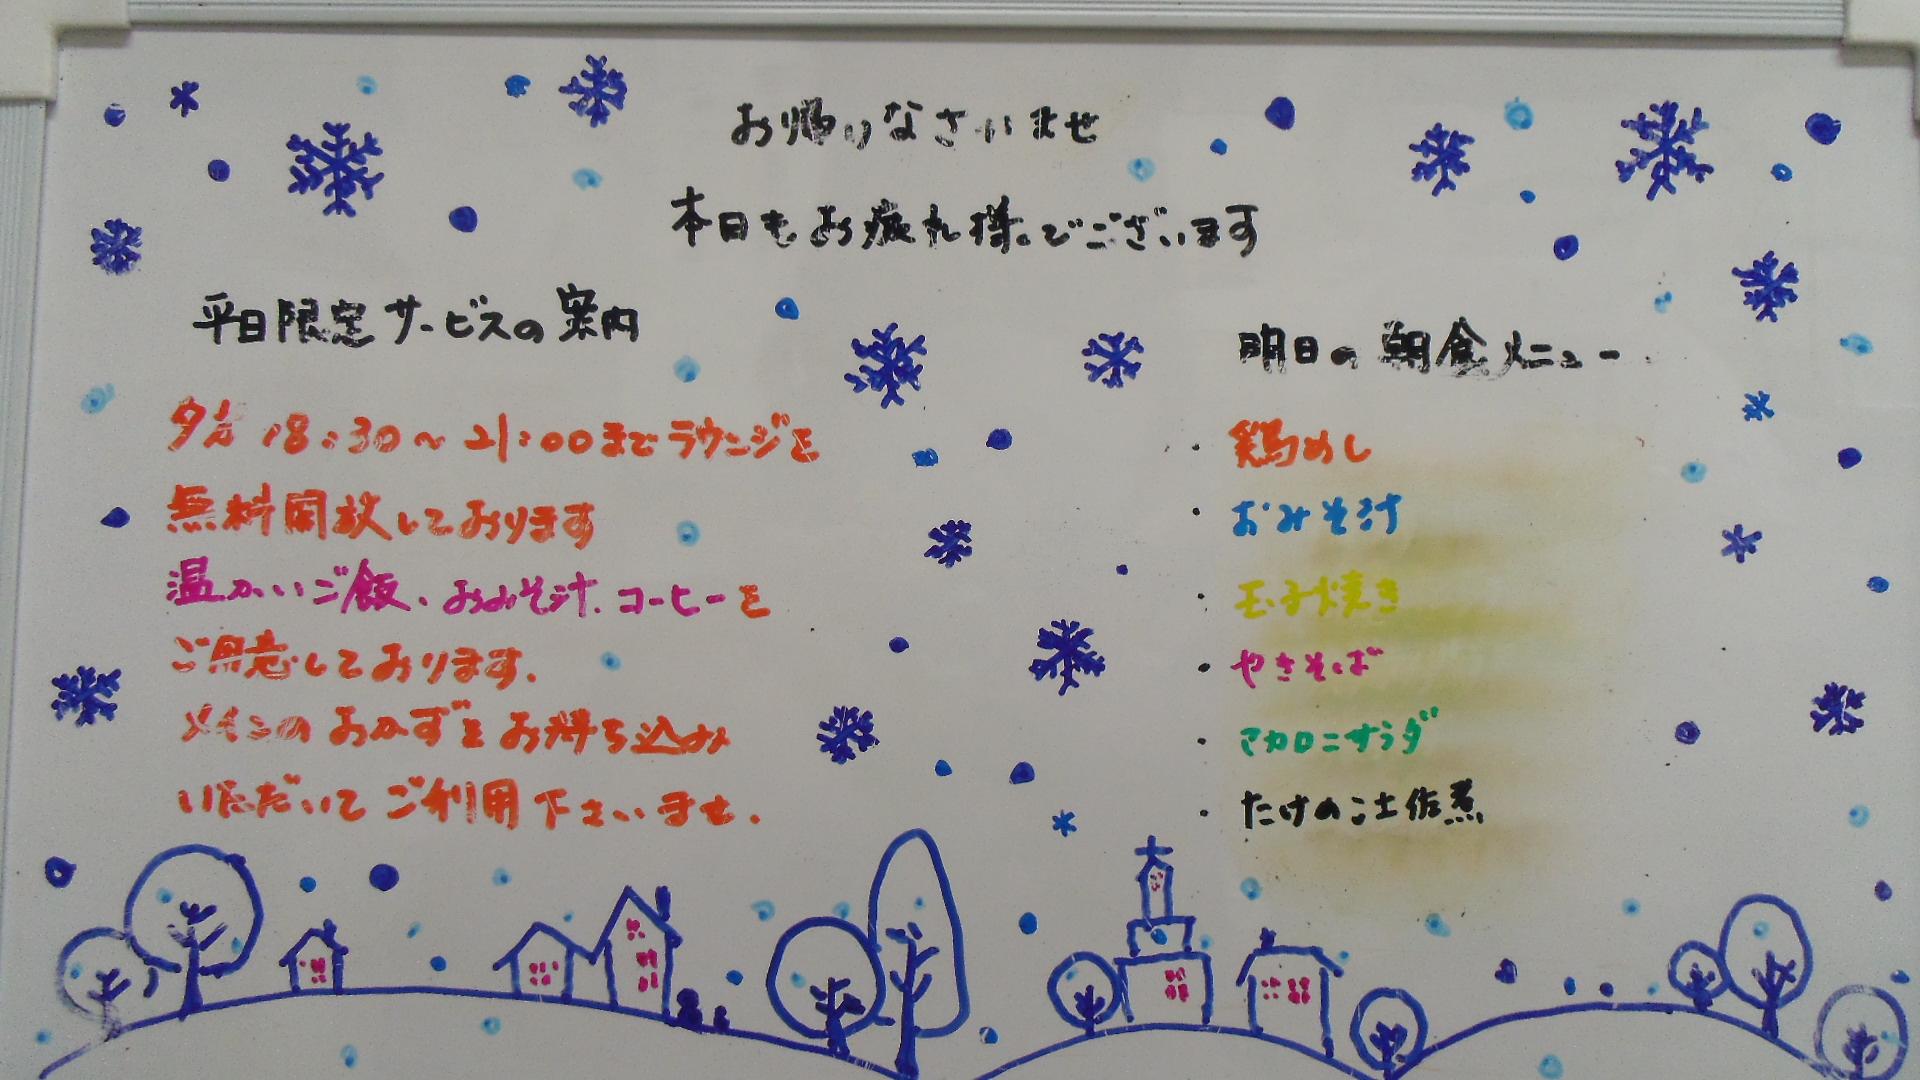 お帰りなさいませ
本日もお疲れ様でございます
平日限定サービスの案内
夕方 18:30～21:00までラウンジを
無料開放しております
温かいご飯、おみそ汁、コーヒーを
ご用意しております。
メインのおかずをお持ち込み
いただいてご利用下さいませ。
明日の朝食メニュー
・鶏めし
・おみそ汁
・玉子焼き
・やきそば
・マカロニサラダ
・たけのこ土佐煮